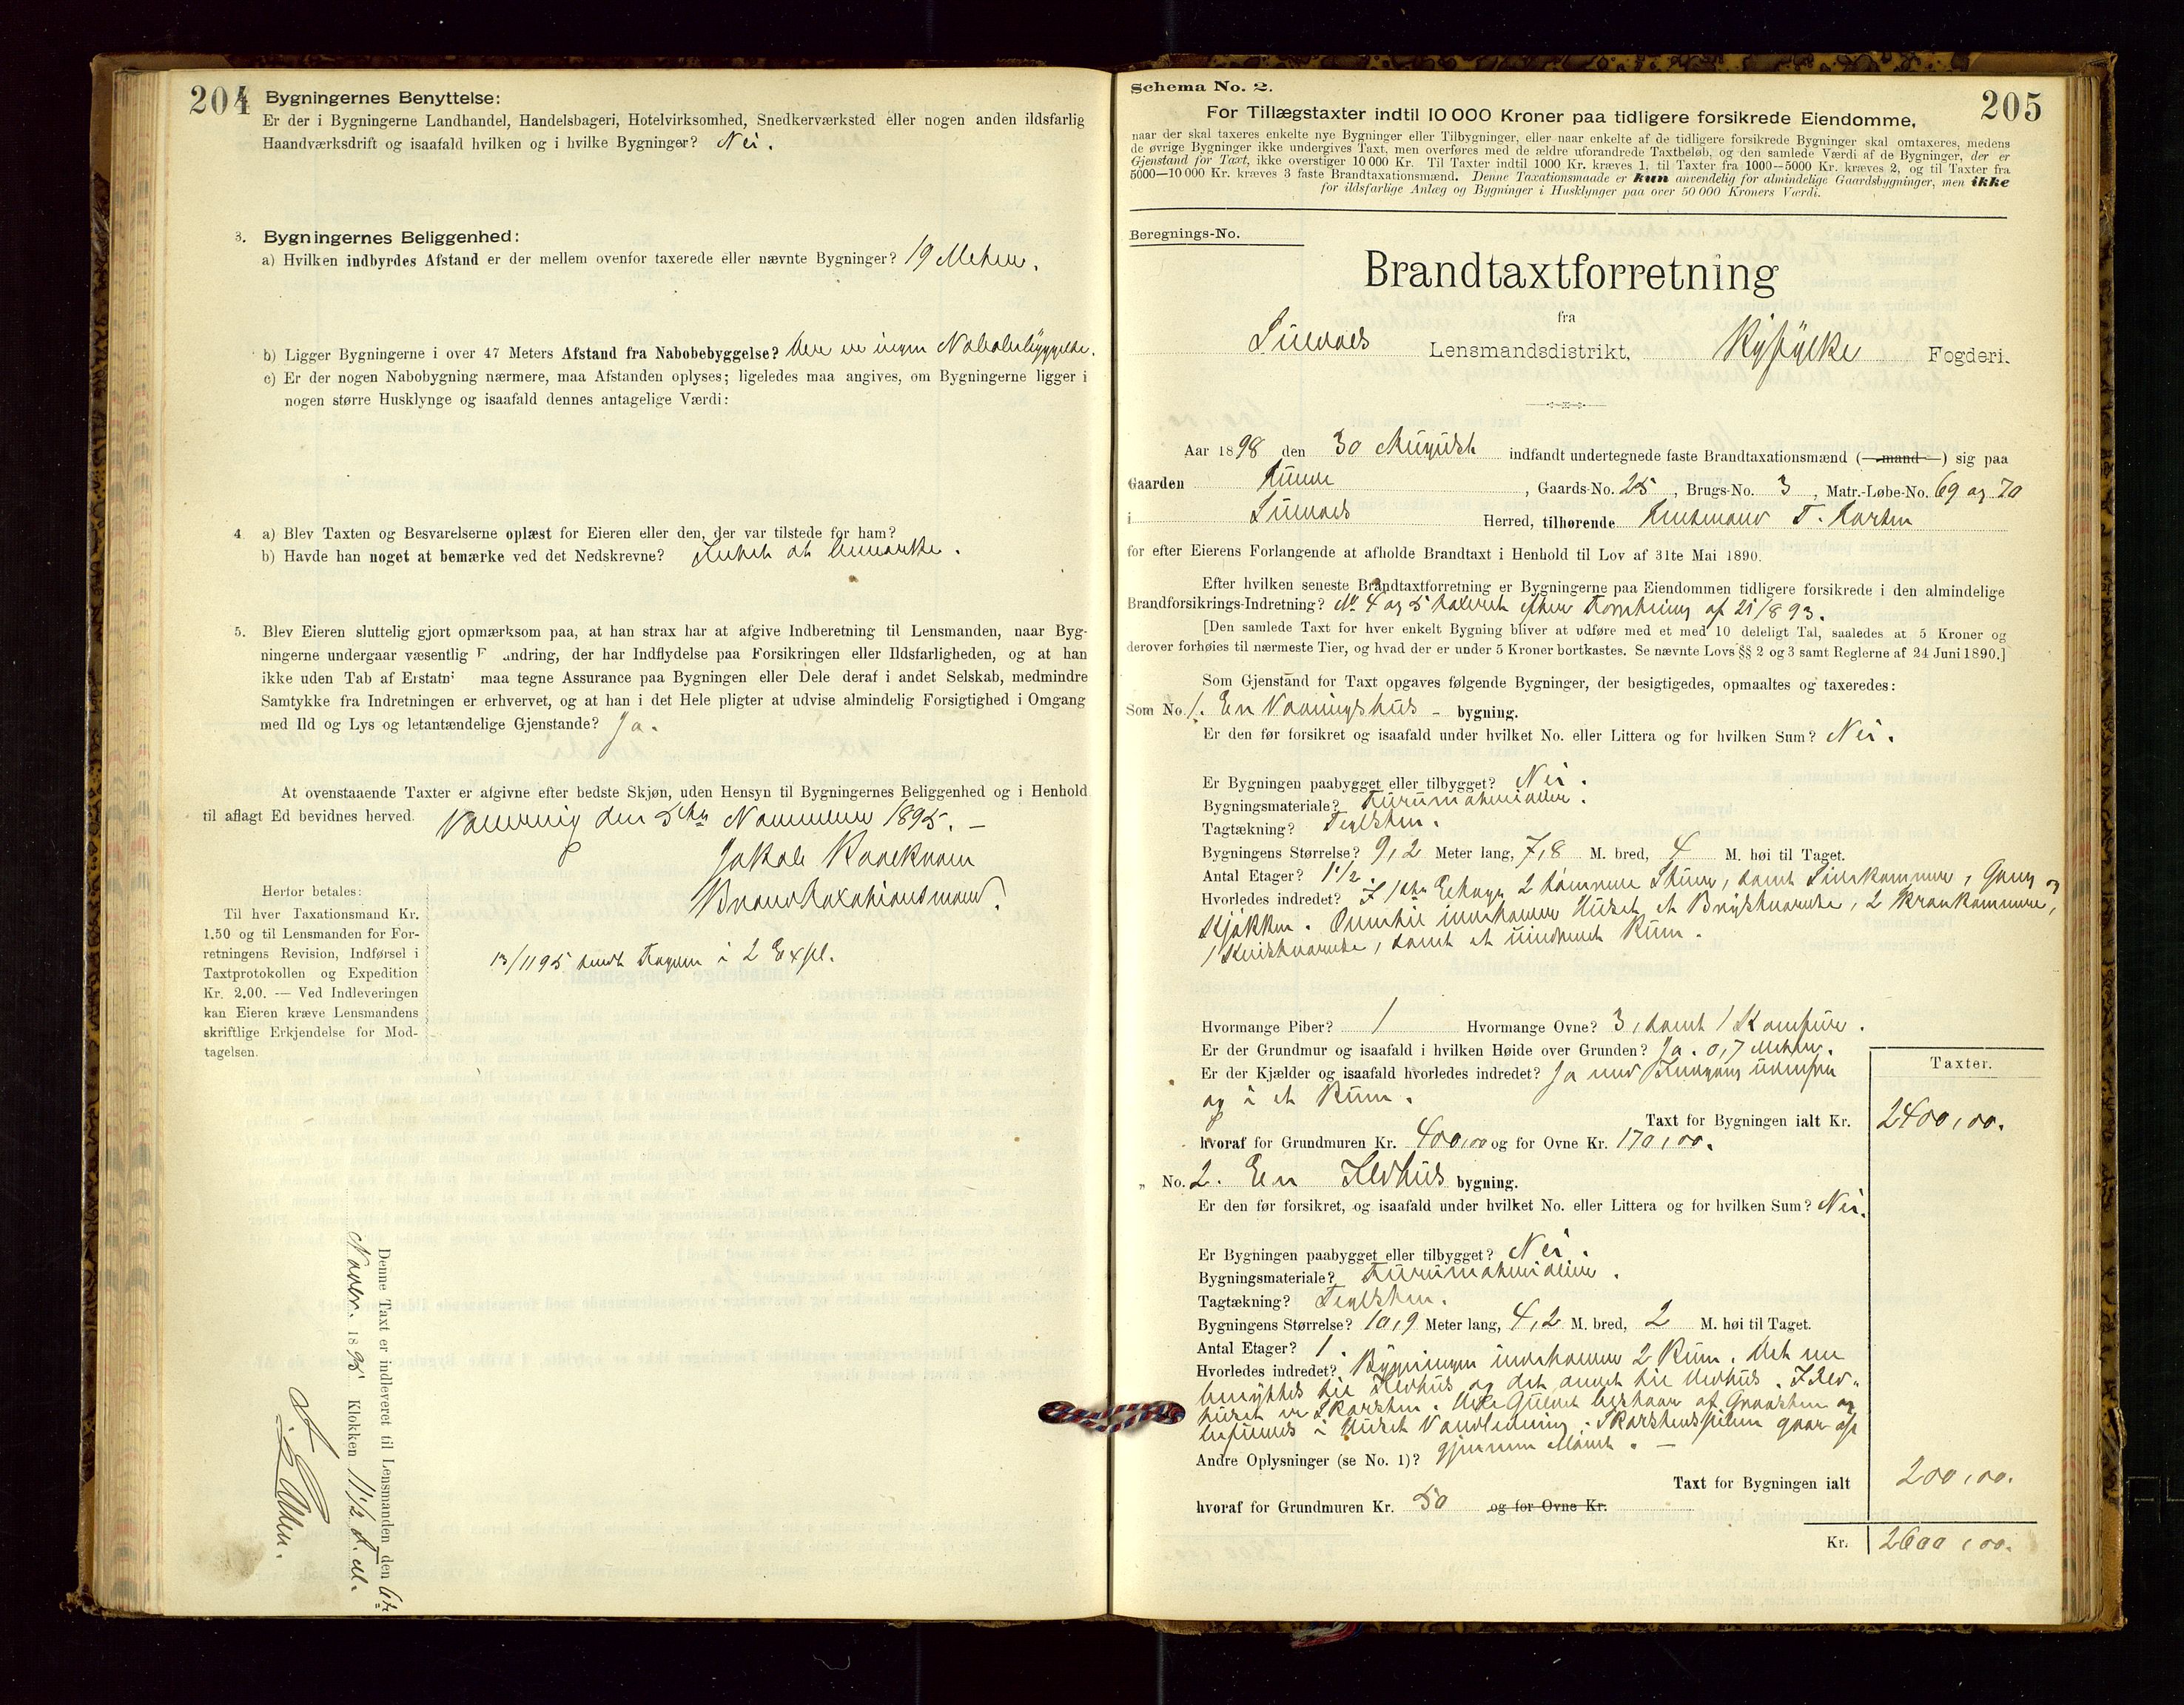 204
Bygningernes Benyttelse:
Er der i Bygningerne Landhandel, Handelsbageri, Hotelvirksomhed, Snedkerværksted eller nogen anden ildsfarlig
Haandværksdrift og isaafald hvilken og i hvilke Bygninger? Nei.
3. Bygningernes Beliggenhed:
a) Hvilken indbyrdes Afstand er der mellem ovenfor taxerede eller nævnte Bygninger? 19 Meter.
b) Ligger Bygningerne i over 47 Meters Afstand fra Nabobebyggelse? Der er ingen Nabobebyggelse.
c) Er der nogen Nabobygning nærmere, maa Afstanden oplyses; ligeledes maa angives, om Bygningerne ligger i
nogen større Husklynge og isaafald dennes antagelige Værdi:
4. a) Blev Taxten og Besvarelserne oplæst for Eieren eller den, der var tilstede for ham?
b) Havde han noget at bemærke ved det Nedskrevne? Intet at bemærke.
5. Blev Eieren sluttelig gjort opmærksom paa, at han strax har at afgive Indberetning til Lensmanden, naar Byg-
ningerne undergaar væsentlig F andring, der har Indflydelse paa Forsikringen eller Ildsfarligheden, og at han
ikke uden Tab af Erstatn maa tegne Assurance paa Bygningen eller Dele deraf i andet Selskab, medmindre
Samtykke fra Indretningen er erhvervet, og at han i det Hele pligter at udvise almindelig Forsigtighed i Omgang
med Ild og Lys og letantændelige Gjenstande? Ja.
At ovenstaaende Taxter er afgivne efter bedste Skjøn, uden Hensyn til Bygningernes Beliggenhed og i Henhold
til aflagt Ed bevidnes herved. den 5te November 1895. –
Jakob
Brandtaxationsmand.
Herfor betales:
Til hver Taxationsmand Kr.
1.50 og til Lensmanden for For-
retningens Revision, Indførsel i
Taxtprotokollen og Expedition
Kr. 2.00. — Ved Indleveringen
kan Eieren kræve Lensmandens
skriftlige Erkjendelse for Mod-
tagelsen.
13/11 95 sendt i 2 Expl.
Denne Taxt er indleveret til Lensmanden den 6te
Novbr. 1895 Klokken 11 1/2 F. M.
205
Schema No. 2.
For Tillægstaxter indtil 10 000 Kroner paa tidligere forsikrede Eiendomme,
naar der skal taxeres enkelte nye Bygninger eller Tilbygninger, eller naar enkelte af de tidligere forsikrede Bygninger skal omtaxeres, medens
de øvrige Bygninger ikke undergives Taxt, men overføres med de ældre uforandrede Taxtbeløb, og den samlede Værdi af de Bygninger, der er
Gjenstand for Taxt, ikke overstiger 10 000 Kr. Til Taxter indtil 1000 Kr. kræves 1, til Taxter fra 1000—5000 Kr. kræves 2, og til Taxter fra
5000—10 000 Kr. kræves 3 faste Brandtaxationsmænd. Denne Taxationsmaade er kun anvendelig for almindelige Gaardsbygninger, men ikke
for ildsfarlige Anlæg og Bygninger i Husklynger paa over 50 000 Kroners Værdi.
Beregnings-No.
Brandtaxtforretning
fra
Suldals Lensmandsdistrikt, Ryfylke Fogderi.
Aar 1898 den 30 August indfandt undertegnede faste Brandtaxationsmænd (mand) sig paa
Gaarden , Gaards-No. 25, Brugs-No. 3, Matr.-Løbe-No. 69 og 70
i Suldals Herred, tilhørende Lensmand T.
for efter Eierens Forlangende at afholde Brandtaxt i Henhold til Lov af 31te Mai 1890.
Efter hvilken seneste Brandtaxtforretning er Bygningerne paa Eiendommen tidligere forsikrede i den almindelige
Brandforsikrings-Indretning? No 4 og 5 taxeret efter Forretning af 21/8 93.
[Den samlede Taxt for hver enkelt Bygning bliver at udføre med et med 10 deleligt Tal, saaledes at 5 Kroner og
derover forhøies til nærmeste Tier, og hvad der er under 5 Kroner bortkastes. Se nævnte Lovs §§ 2 og 3 samt Reglerne af 24 Juni 1890.]
Som Gjenstand for Taxt opgaves følgende Bygninger, der besigtigedes, opmaaltes og taxeredes:
Som No. 1. En Vaaningshus - bygning.
Er den før forsikret og isaafald under hvilket No. eller Littera og for hvilken Sum? Nei.
Er Bygningen paabygget eller tilbygget? Nei.
Bygningsmateriale? Furumaterialier.
Tagtækning? Teglsten.
Bygningens Størrelse? 9,2 Meter lang, 7,8 M. bred, 4 M. høi til Taget.
Antal Etager? 1 1/2.
Hvorledes indredet? I 1ste Etage 2 tømrede Stuer, samt Sidekammer, Gang og
Kjøkken. Oventil indeholder Huset et Brystværelse, 2 Kraakammere,
1 Kvistværelse, samt et uindredet Rum.
Hvormange Piber? 1 Hvormange Ovne? 3, samt 1 Komfur.
Er der Grundmur og isaafald i hvilken Høide over Grunden? Ja. 0,7 Meter.
Er der Kjælder og isaafald hvorledes indredet? Ja med Indgang udenfra
og i et Rum.
Taxter.
Taxt for Bygningen ialt Kr. 2400,00.
hvoraf for Grundmuren Kr. 400,00 og for Ovne Kr. 170,00.
„ No. 2. En Ildhus bygning.
Er den før forsikret, og isaafald under hvilket No. eller Littera og for hvilken Sum? Nei.
Er Bygningen paabygget eller tilbygget? Nei.
Bygningsmateriale? Furumaterialier.
Tagtækning? Teglsten.
Bygningens Størrelse? 10,9 Meter lang, 4,2 M. bred, 2 M. høi til Taget.
Antal Etager? 1.
Hvorledes indredet? Bygningen indeholder 2 Rum. Det ene
benyttes til Ildhus og det andet til Vedhus. I Ild-
huset er Skorsten. Gulvet bestaar af Graasten og
befindes i Huset Vandledning. Skorstenspiben gaar op
Andre Oplysninger (se No. 1)? gjennem Mønet. –
Taxt for Bygningen ialt 200,00.
hvoraf for Grundmuren Kr. 50 og for Ovne Kr.
Kr. 2600,00.